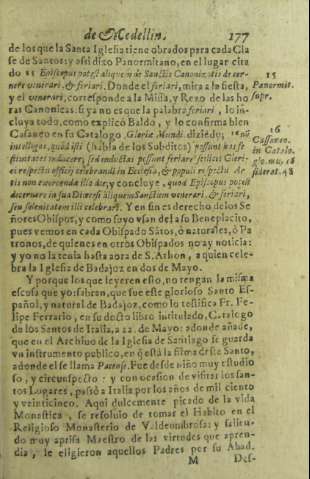 de Medellin. 177
de los que la Santa Iglesia tiene obrados para cada Cla
se de Santos: y assi dixo Panormitano, en el lugar cita
do 15 Episcopus potest aliquem de Sanctis Canonizatis decer-
nere venerari, & feriari. Donde el feriari, mira a la fiesta,
y el venerari, corresponde a la Missa, y Rezo de las ho
ras Canonicas. Si ya no es que la palabra feriari, lo in-
cluya todo, como explicò Baldo, y le confirma bien
Casaneo en su Catalogo, Gloriæ Mundi. diziẽdo; 16
intelligo, quòd isti (habla de los Subditos) possunt
inducere, sed possint feriare
respectu officij celebrandi in Ecclesia, & populi respectu
tis non exercendæ illo die, y concluye, quod Episcopus potest
decernere in sua Diœcesi aliquem Sanctum venerari, & feriari,
seu solemnitatem illi celebrari. Y en fin es derecho de los Se
ñores Obispos, y como suyo vsan del a su Beneplacito,
pues vemos en cada Obispado Sãtos, ò naturales, ò Pa
tronos, de quienes en otros Obispados no ay noticia:
y yo no la tenia hasta aora de S. Athon, a quien cele-
bra la Iglesia de Badajoz en dos de Mayo.
Y porque los que leyeren esto, no tengan la misma
escusa que yo, sabràn, que fue este glorioso Santo Es-
pañol, y natural de Badajoz, como lo testifica Fr. Fe-
lipe Ferrario, en su docto libro intitulado, Catalogo
de los Santos de Italia, a 22. de Mayo: adonde añade,
que en el Archiuo de la Iglesia de Santiago se guarda
vn instrumento publico, en q̃ està la firma deste Santo,
adonde el se llama Patense. Fue desde niño muy estudio
so, y circunspecto: y con ocasion de visitar los san-
tos Lugares, passò a Italia por los años de mil ciento
y veinticinco. Aqui dulcemente picado de la vida
Monastica, se resoluio de tomar el Habito en el
Religioso Monasterio de Valdeumbrosa: y salien-
do muy aprisa Maestro de las virtudes que apren-
dia, le eligieron aquellos Padres por su Abad.
M Des-
15
Panormit.
supr.
16
Cassaneo.
in Catalo.
glo. mũ.